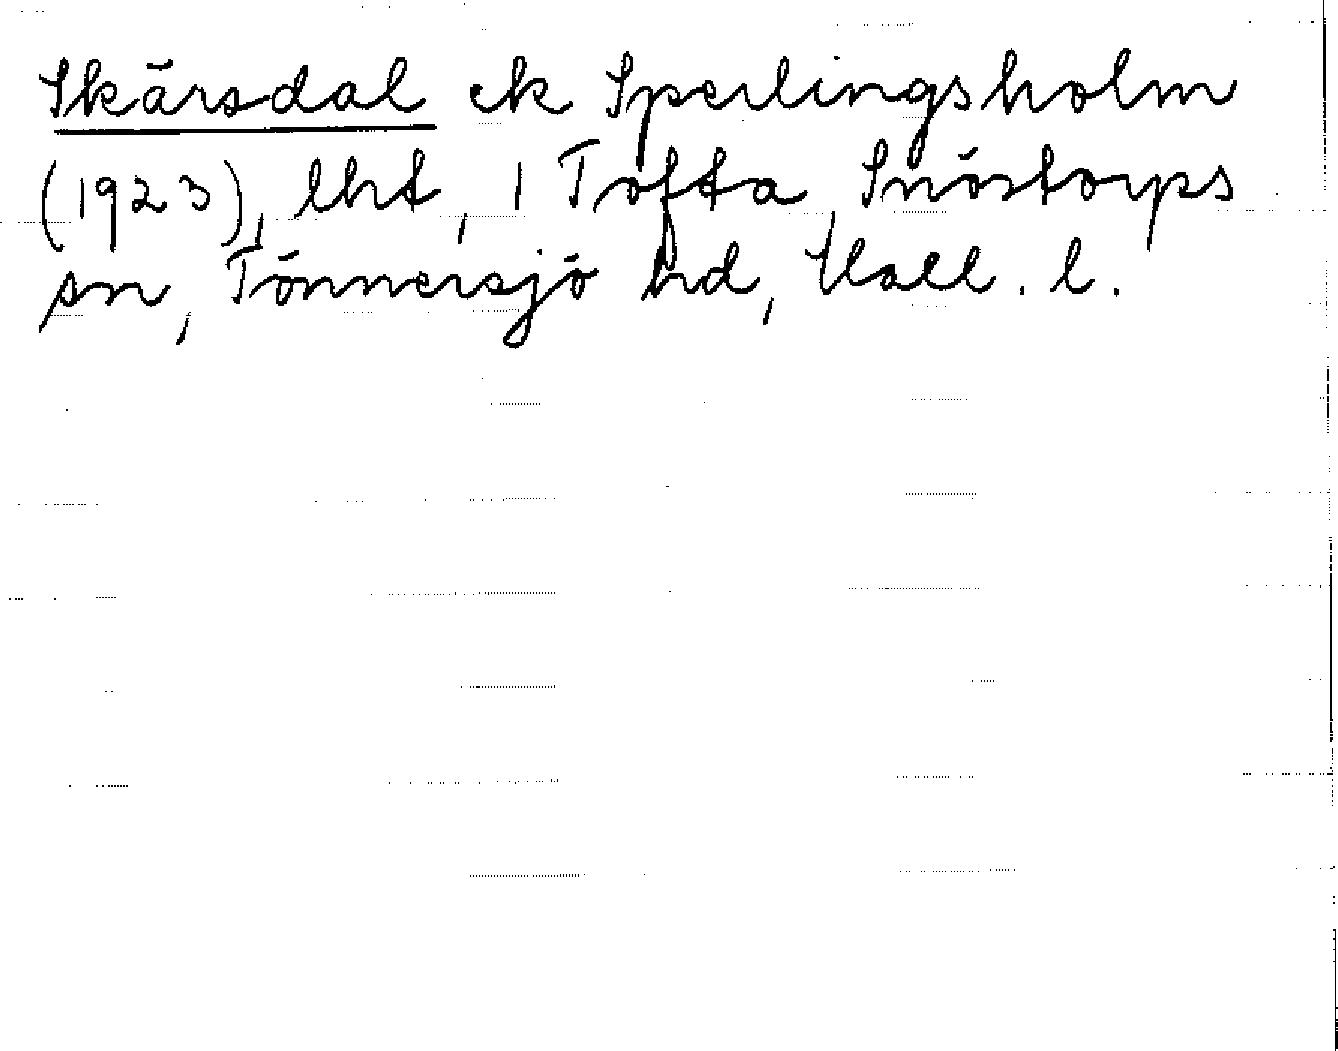 Skärsdal ek Sperlingsholm
(1923), lht, 1 Tofta, Snöstorps
sn, Tönnersjö hd, Hall. l.